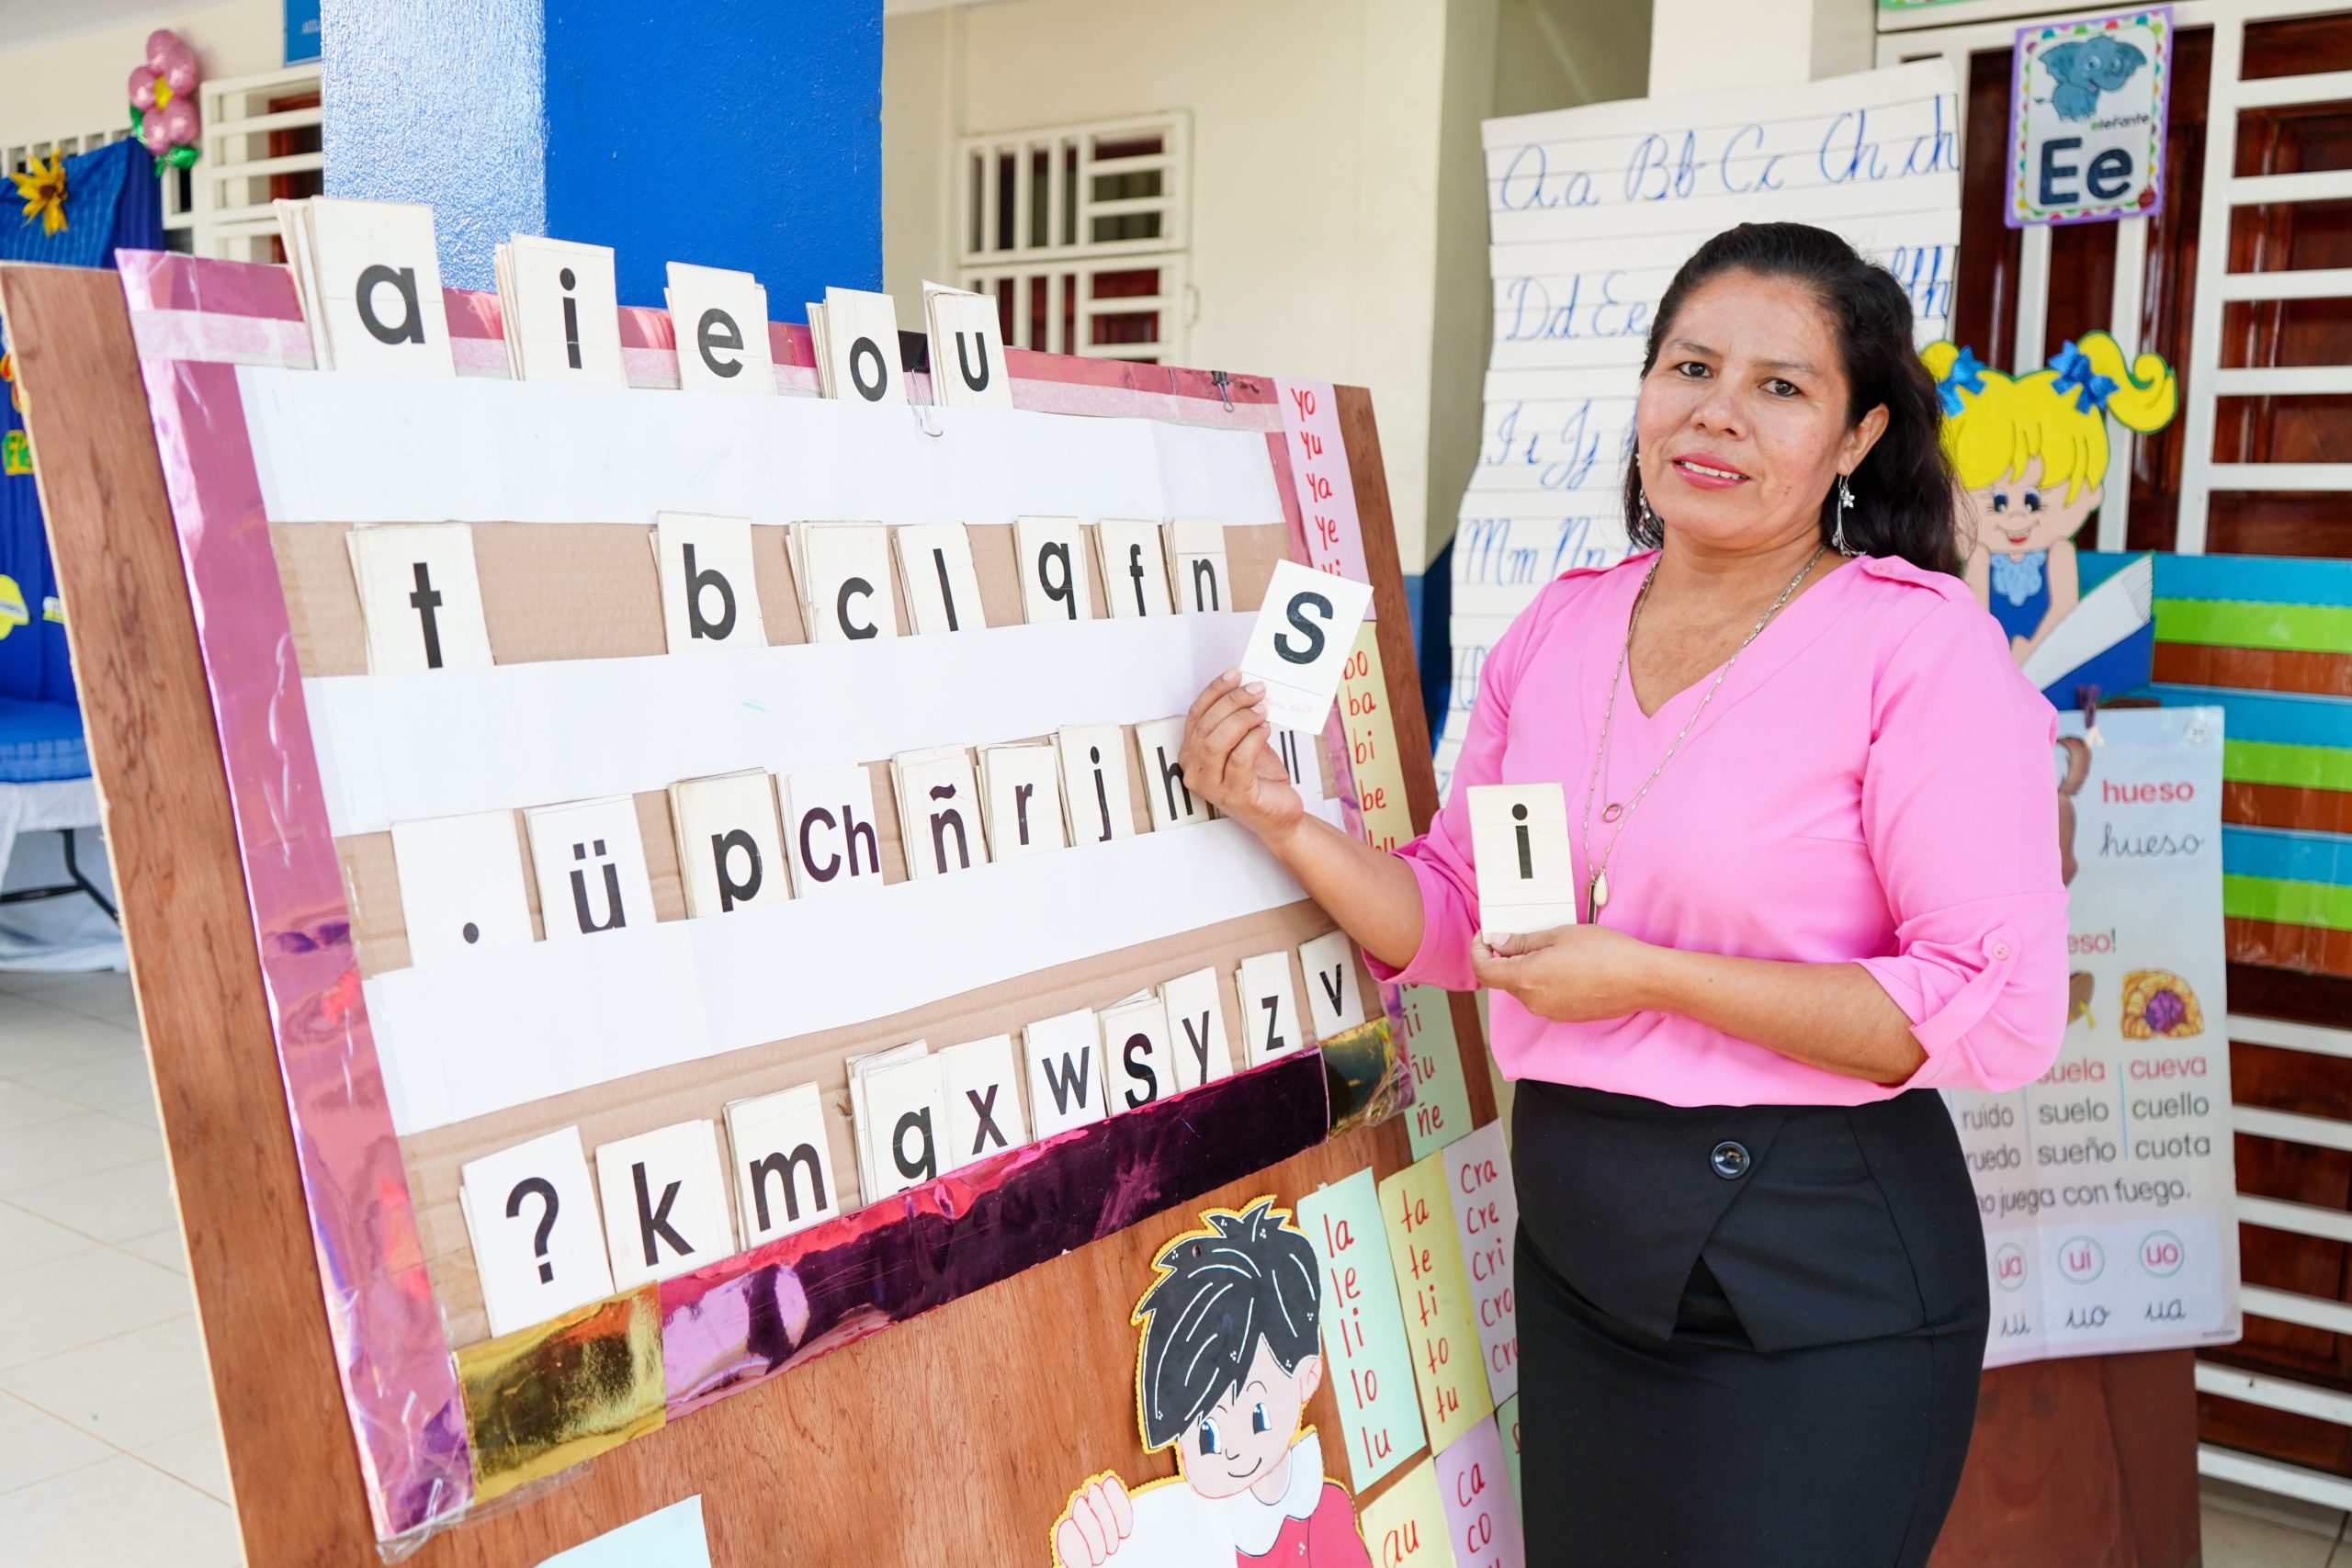 a i e o u
t b c l q f n
. ü p Ch ñ r j h ll
? k m g x w s y z v
s
i
yo
yu
ya
ye
yi
bo
ba
bi
be
bu
ñi
ñu
ñe
la
le
li
lo
lu
ta
te
ti
to
tu
cra
cre
cri
cro
cru
ca
co
au
Aa Bb Cc Ch ch
Dd Ee
Ii Jj
Mm Nn
elefante
Ee
hueso
hueso
eso!
suela cueva
ruido suelo cuello
ruedo sueño cuota
no juega con fuego.
ua ui uo
ui uo ua